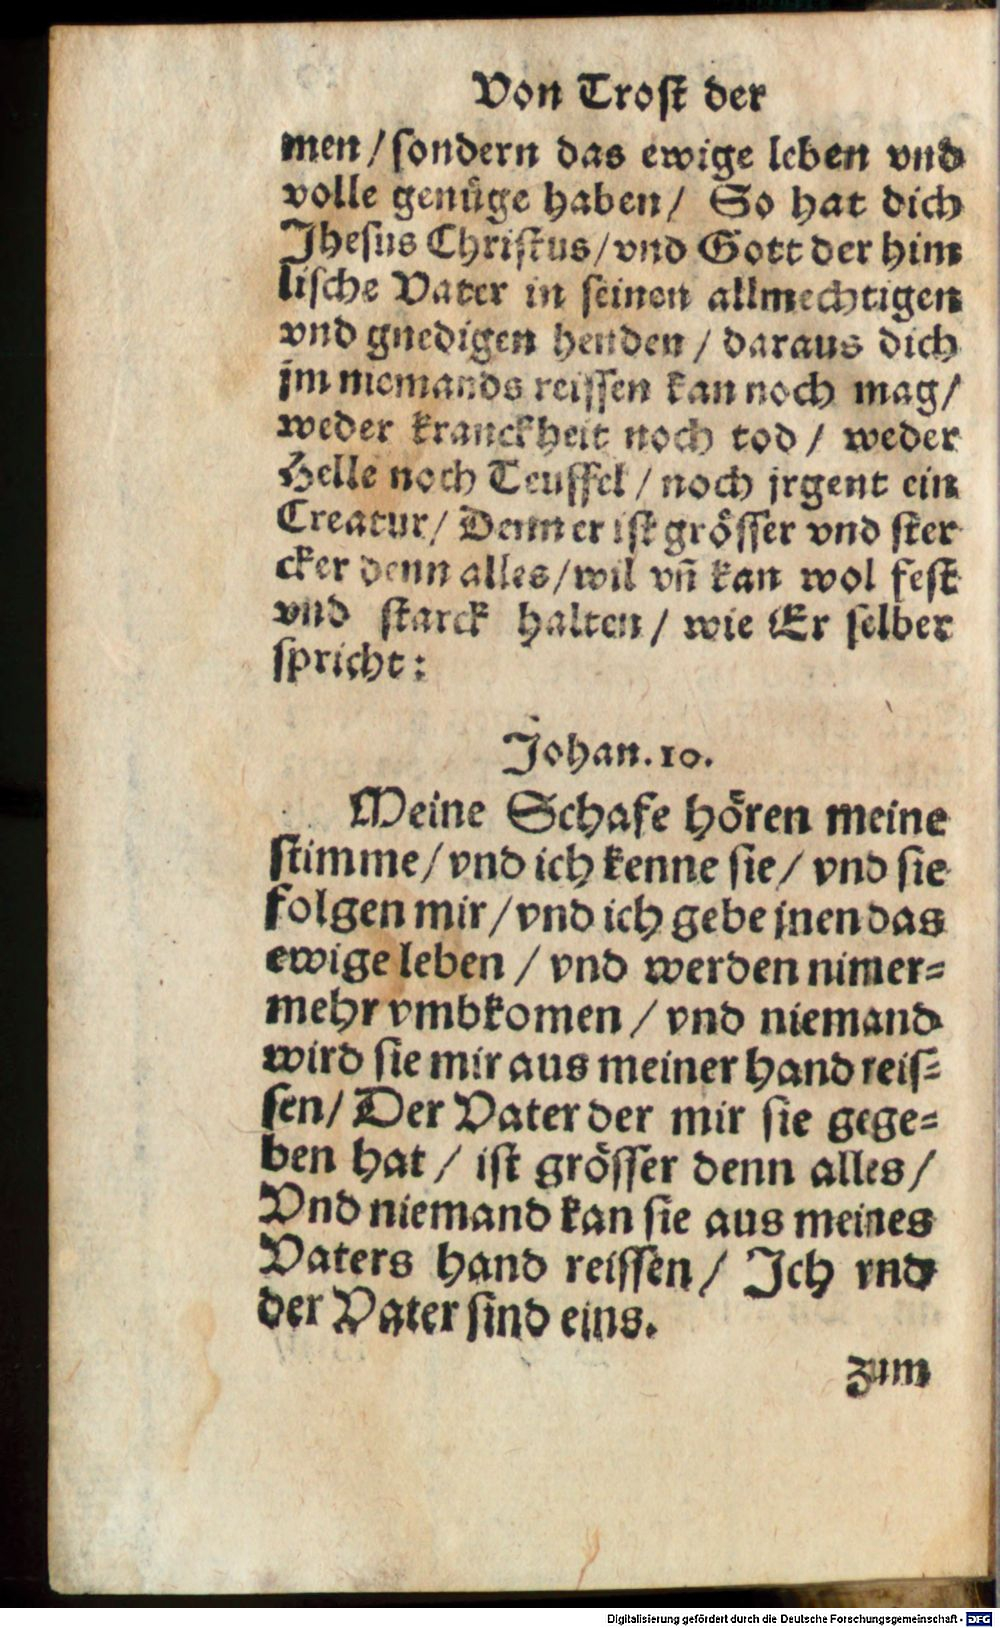 Von Trost der
men / sondern das ewige leben vnd
volle genüge haben / So hat dich
Jhesus Christus / vnd Gott der him
lische Vater in seinen allmechtigen
vnd gnedigen henden / daraus dich
jm niemands reissen kan noch mag /
weder kranckheit noch tod / weder
Helle noch Teuffel / noch jrgent ein
Creatur / Denn er ist grösser vnd ster
cker denn alles / wil vñ kan wol fest
vnd starck halten / wie Er selber
spricht:
Johan. 10.
Meine Schafe hören meine
stimme / vnd ich kenne sie / vnd sie
folgen mir / vnd ich gebe jnen das
ewige leben / vnd werden nimer=
mehr vmbkomen / vnd niemand
wird sie mir aus meiner hand reis=
sen / Der Vater der mir sie gege=
ben hat / ist grösser denn alles /
Vnd niemand kan sie aus meines
Vaters hand reissen / Ich vnd
der Vater sind eins.
zum
Digitalisierung gefördert durch die Deutsche Forschungsgemeinschaft - DFG